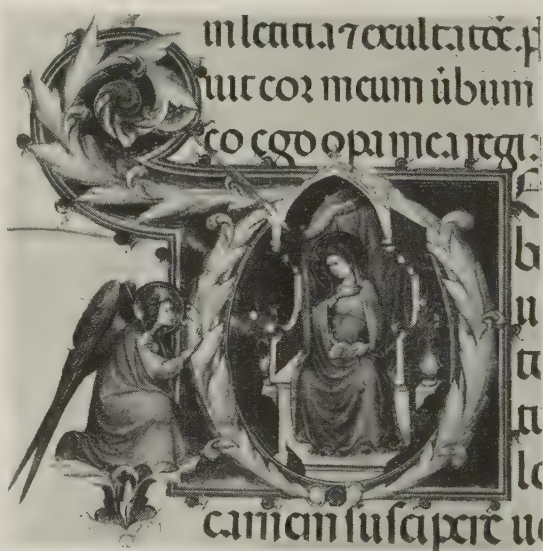 in leticia ⁊ exultatōe. p
uit cor meum ūbum
co ego opa mea regi
b
u
ti
ti
lo
carnem suscipere u